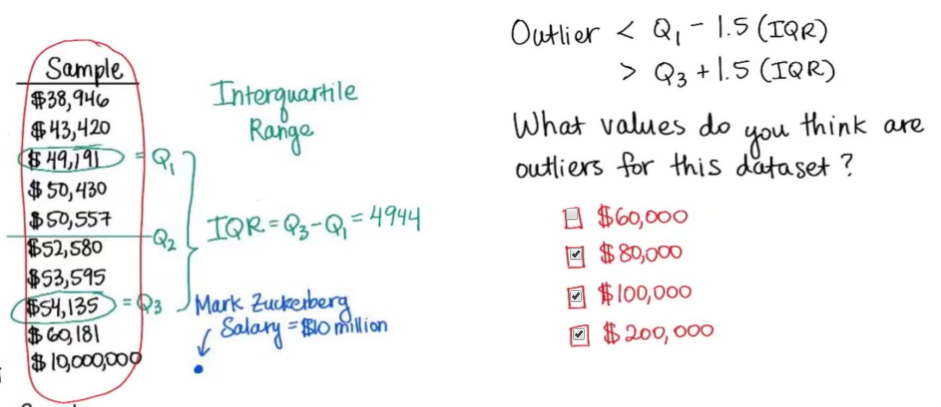 Sample
$38,946
$43,420
$49,191 = Q1
$50,430
$50,557
Q2
$52,580
$53,595
$54,135 = Q3
$60,181
$10,000,000
Interquartile
Range
IQR = Q3 - Q1 = 4944
Mark Zuckerberg
Salary = $10 million
Outlier < Q1 - 1.5 (IQR)
> Q3 + 1.5 (IQR)
What values do you think are
outliers for this dataset?
$60,000
$80,000
$100,000
$200,000